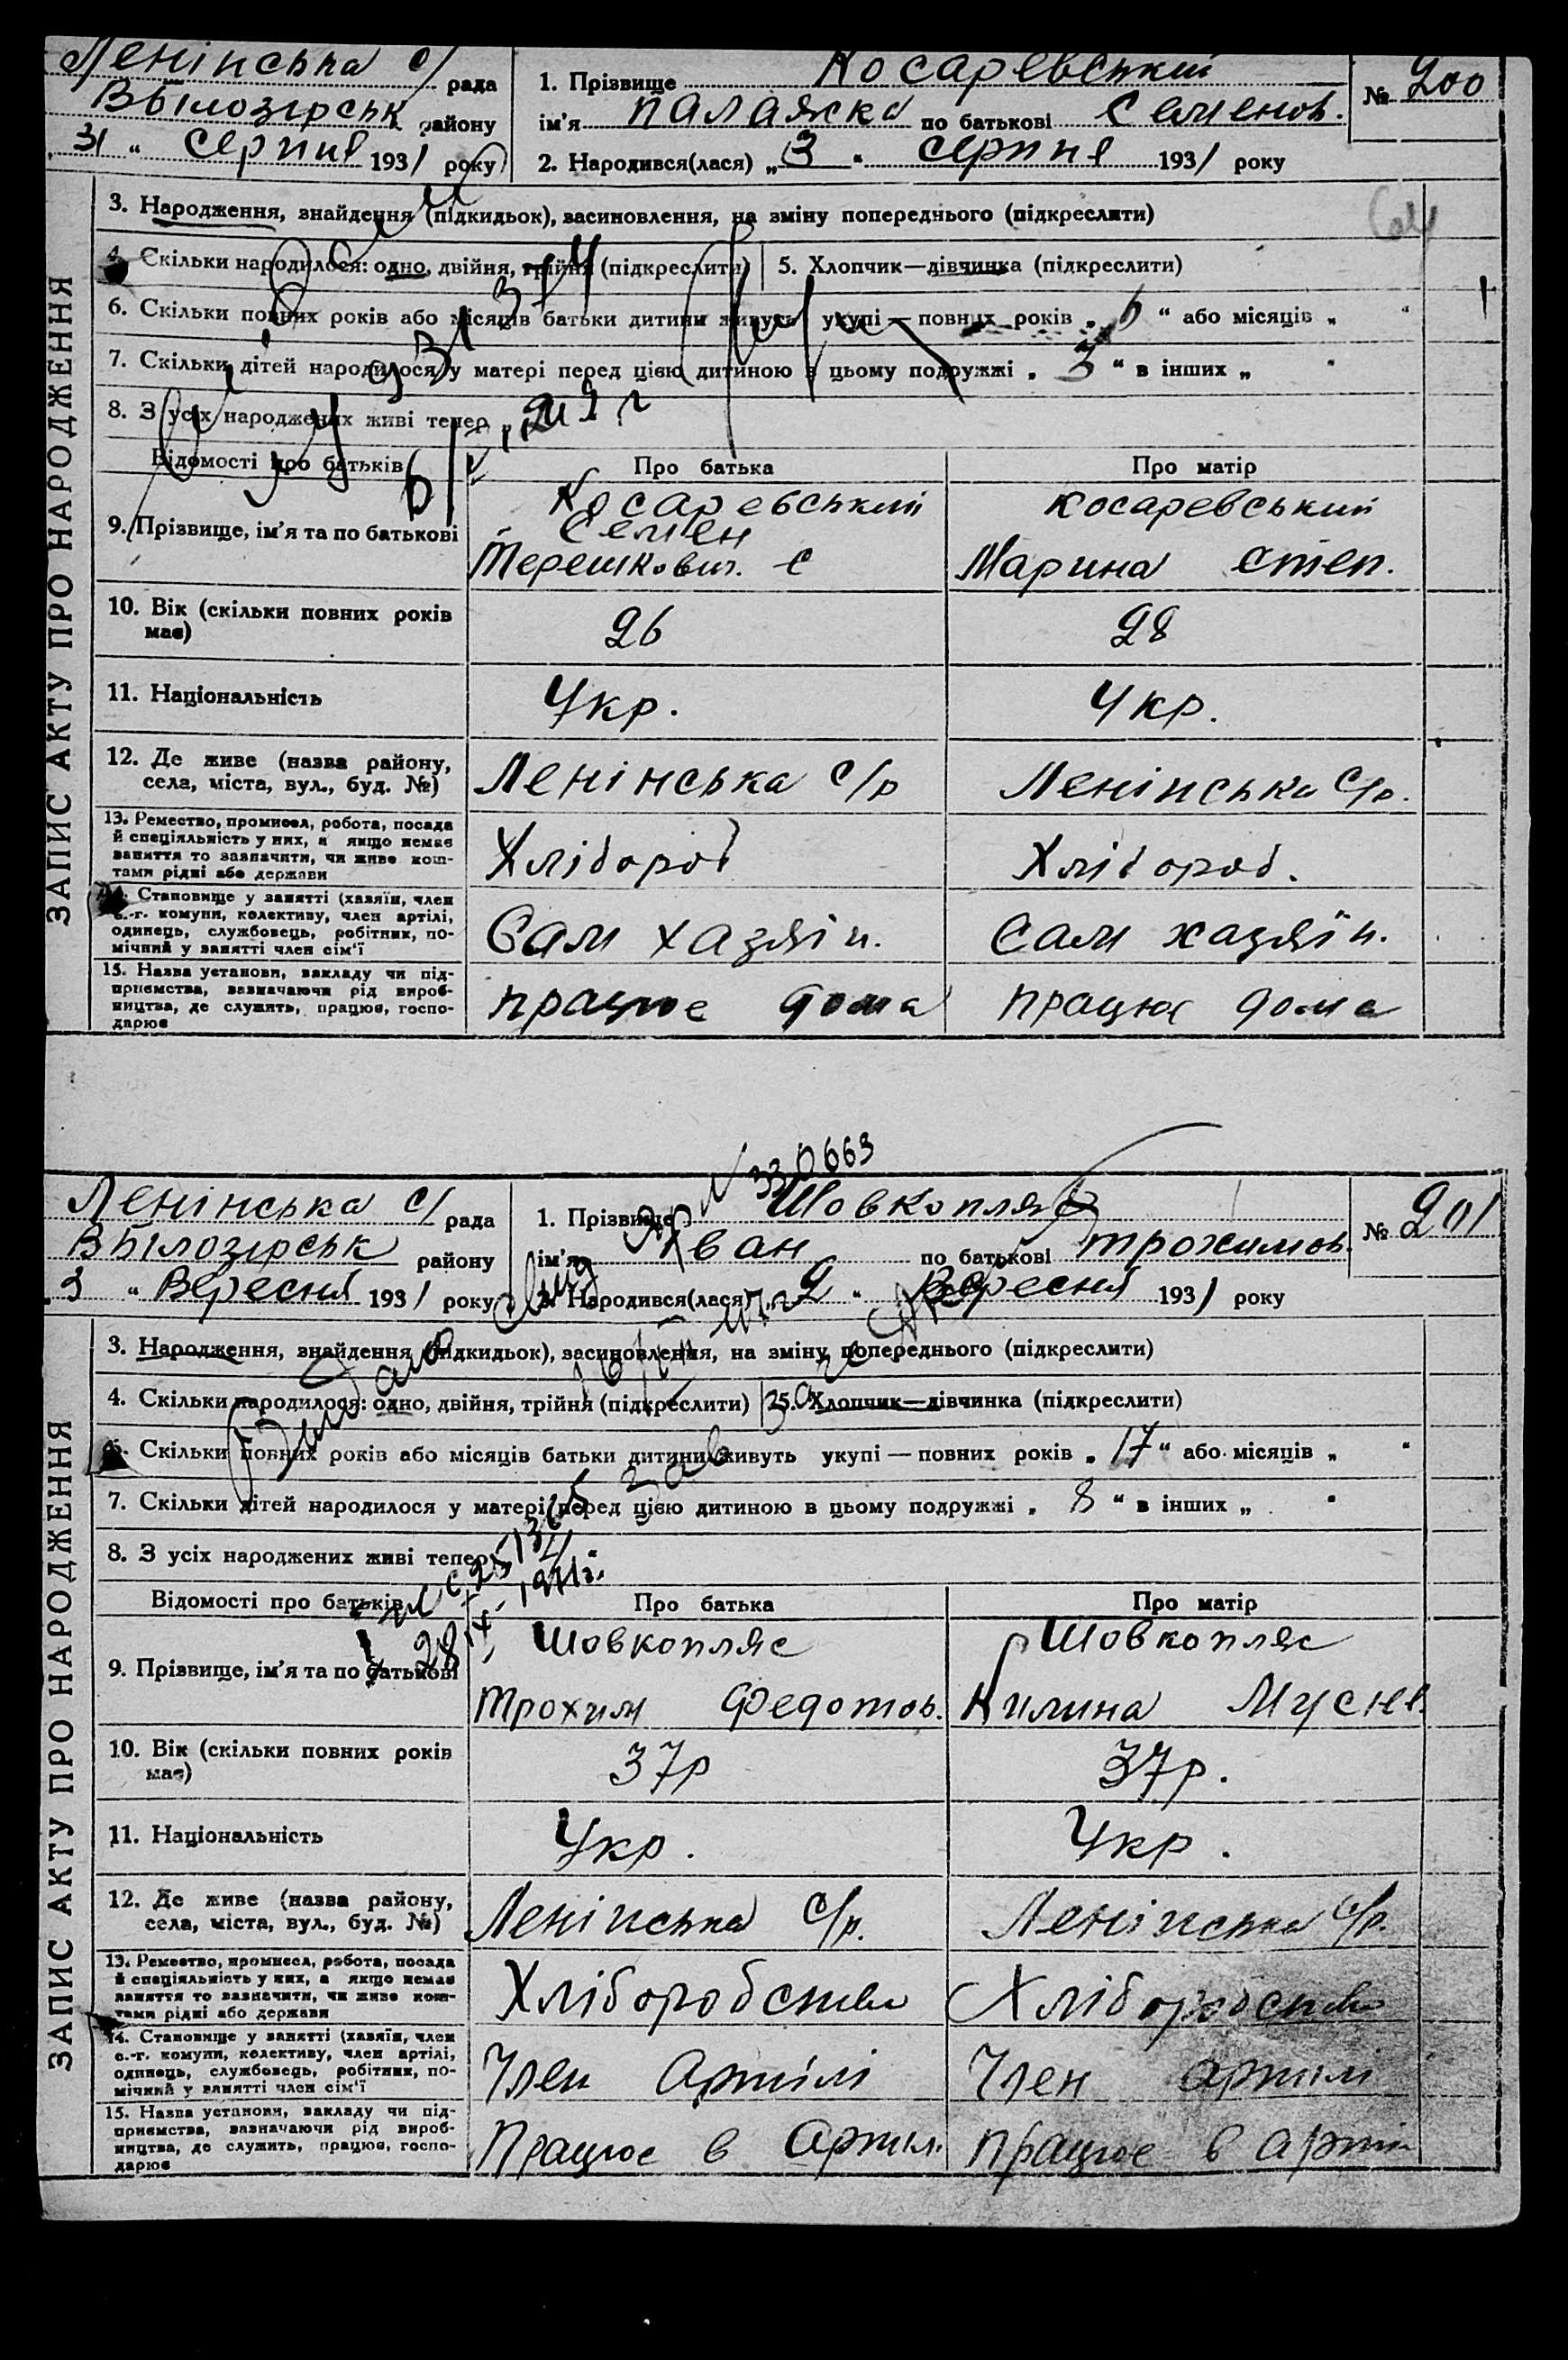 Ленінська с/ рада
Вбілозірськ району
31 " Серпня 1931 року
1. Прізвище Косаревський
ім'я Палажка по батькові Семенов.
2. Народився(лася) „ 3 " Серпня 1931 року
№ 200
ЗАПИС АКТУ ПРО НАРОДЖЕННЯ
3. Народження, знайдення (підкидьок), засиновлення, на зміну попереднього (підкреслити)
4. Скільки народилося: одно, двійня, трійня (підкреслити) 5. Хлопчик—дівчинка (підкреслити)
6. Скільки повних років або місяців батьки дитини живуть укупі — повних років „ 6 " або місяців „ "
7. Скільки дітей народилося у матері перед цією дитиною в цьому подружжі „ 3 " в інших „ "
8. З усіх народжених живі тепер
Відомості про батьків Про батька Про матір
9. Прізвище, ім'я та по батькові
Косаревський
Семен
Терешкович. с
Косаревський
Марина Степ.
10. Вік (скільки повних років має) 26 28
11. Національність Укр. Укр.
12. Де живе (назва району, села, міста, вул., буд. №) Ленінська с/р Ленінська с/р.
13. Ремество, промисел, робота, посада
й спеціяльність у них, а якщо немає
заняття то зазначити, чи живе кош-
тами рідні або держави
Хлібороб Хлібороб.
14. Становище у занятті (хазяїн, член
с.-г. комуни, колективу, член артілі,
одинець, службовець, робітник, по-
мічний у занятті член сім'ї
Сам хазяїн. Сам хазяїн.
15. Назва установи, закладу чи під-
приємства, зазначаючи рід вироб-
ництва, де служить, працює, госпо-
дарює
працює дома працює дома
№ 330663
Ленінська с/ рада
Вбілозірськ району
3 " Вересня 1931 року
1. Прізвище Шовкопляс
ім'я Іван по батькові Трохимов.
2. Народився(лася) „ 2 " Вересня 1931 року
№ 201
ЗАПИС АКТУ ПРО НАРОДЖЕННЯ
3. Народження, знайдення (підкидьок), засиновлення, на зміну попереднього (підкреслити)
4. Скільки народилося: одно, двійня, трійня (підкреслити) 5. Хлопчик—дівчинка (підкреслити)
6. Скільки повних років або місяців батьки дитини живуть укупі — повних років „ 17 " або місяців „ "
7. Скільки дітей народилося у матері перед цією дитиною в цьому подружжі „ 8 " в інших „ "
8. З усіх народжених живі тепер
Відомості про батьків Про батька Про матір
9. Прізвище, ім'я та по батькові
Шовкопляс
Трохим Федотов.
Шовкопляс
Килина Мусієв.
10. Вік (скільки повних років має) 37р 37р.
11. Національність Укр. Укр.
12. Де живе (назва району, села, міста, вул., буд. №) Ленінська с/р. Ленінська с/р.
13. Ремество, промисел, робота, посада
й спеціяльність у них, а якщо немає
заняття то зазначити, чи живе кош-
тами рідні або держави
Хліборобство Хліборобство
14. Становище у занятті (хазяїн, член
с.-г. комуни, колективу, член артілі,
одинець, службовець, робітник, по-
мічний у занятті член сім'ї
Член Артілі Член артілі
15. Назва установи, закладу чи під-
приємства, зазначаючи рід вироб-
ництва, де служить, працює, госпо-
дарює
Працює в Артіл. працює в арті